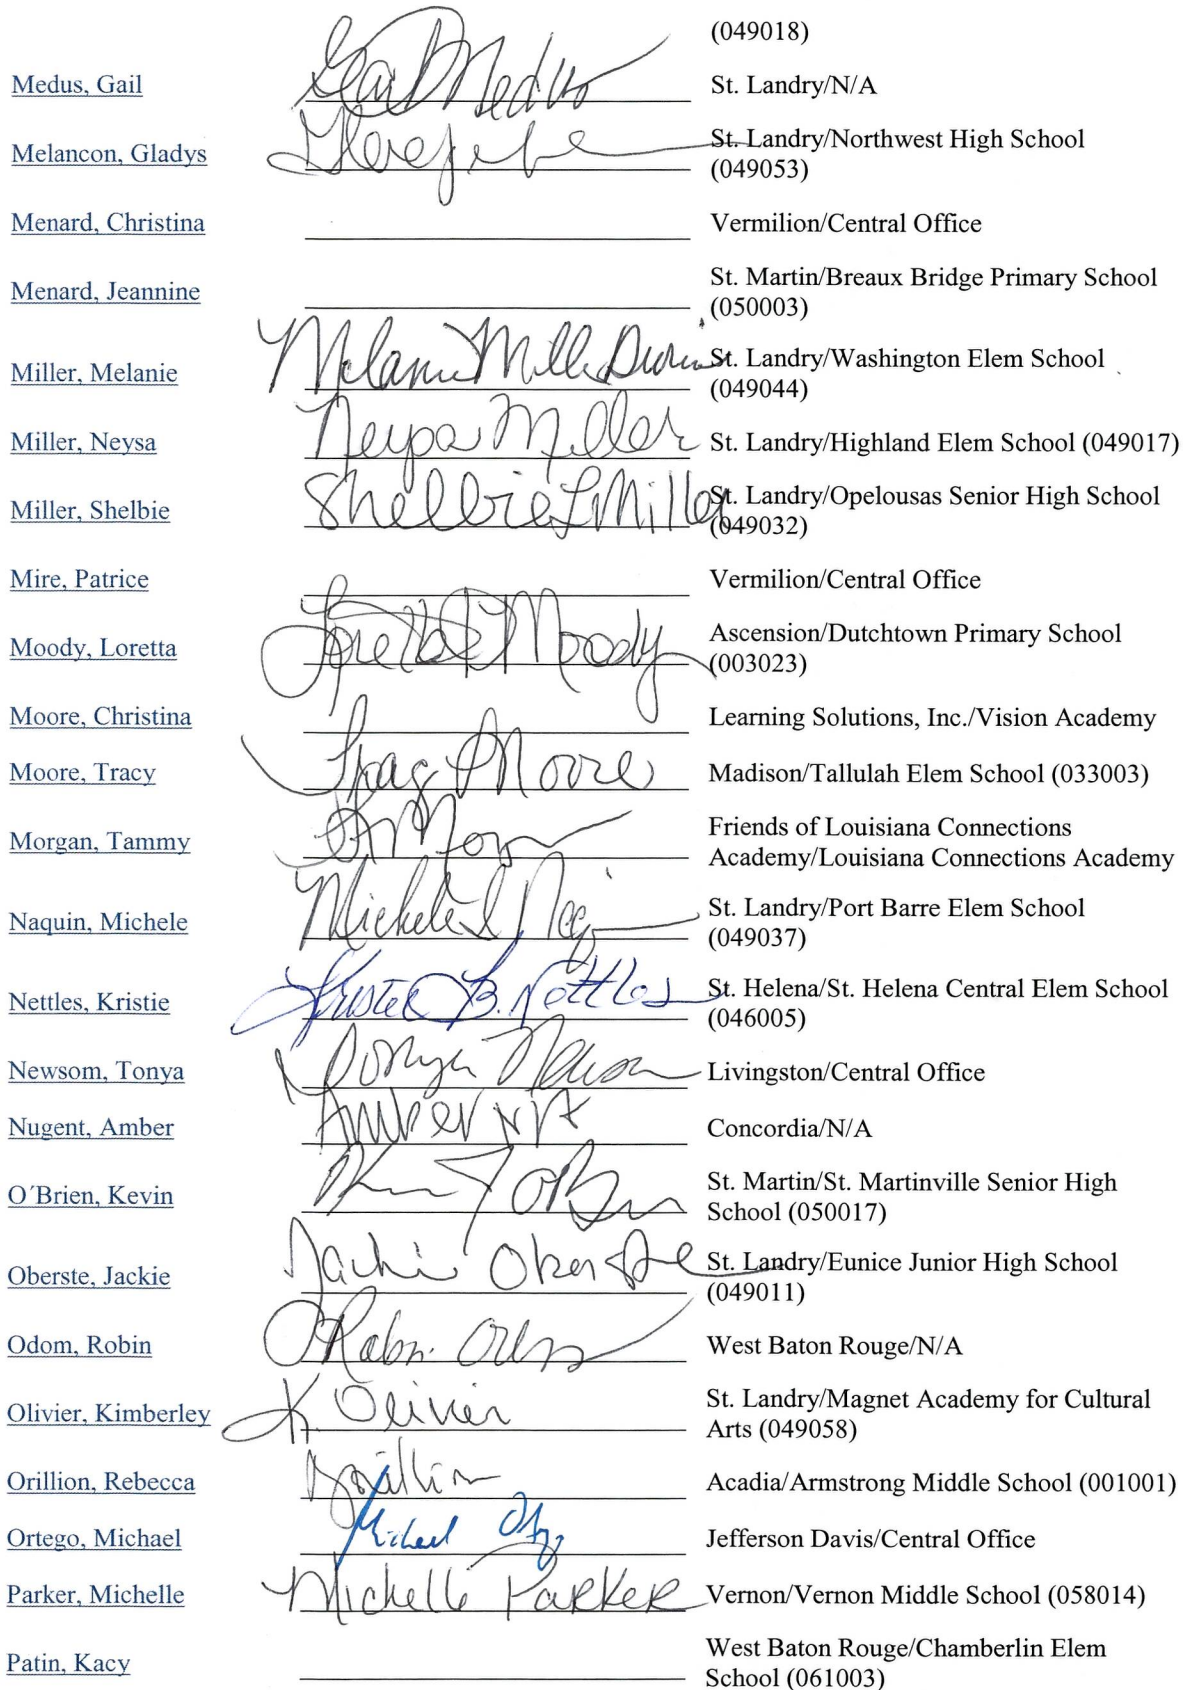 (049018)
Medus, Gail Gail Medus St. Landry/N/A
Melancon, Gladys St. Landry/Northwest High School
(049053)
Menard, Christina Vermilion/Central Office
Menard, Jeannine St. Martin/Breaux Bridge Primary School
(050003)
Miller, Melanie Melanie Miller St. Landry/Washington Elem School
(049044)
Miller, Neysa Neysa Miller St. Landry/Highland Elem School (049017)
Miller, Shelbie Shelbie L Miller St. Landry/Opelousas Senior High School
(049032)
Mire, Patrice Vermilion/Central Office
Moody, Loretta Loretta Moody Ascension/Dutchtown Primary School
(003023)
Moore, Christina Learning Solutions, Inc./Vision Academy
Moore, Tracy Tracy Moore Madison/Tallulah Elem School (033003)
Morgan, Tammy Friends of Louisiana Connections
Academy/Louisiana Connections Academy
Naquin, Michele Michele St. Landry/Port Barre Elem School
(049037)
Nettles, Kristie Kristie B. Nettles St. Helena/St. Helena Central Elem School
(046005)
Newsom, Tonya Tonya Newsom Livingston/Central Office
Nugent, Amber Amber Concordia/N/A
O´Brien, Kevin O'Brien St. Martin/St. Martinville Senior High
School (050017)
Oberste, Jackie Jackie Oberste St. Landry/Eunice Junior High School
(049011)
Odom, Robin Robin Odom West Baton Rouge/N/A
Olivier, Kimberley K Olivier St. Landry/Magnet Academy for Cultural
Arts (049058)
Orillion, Rebecca Orillion Acadia/Armstrong Middle School (001001)
Ortego, Michael Michael Jefferson Davis/Central Office
Parker, Michelle Michelle Parker Vernon/Vernon Middle School (058014)
Patin, Kacy West Baton Rouge/Chamberlin Elem
School (061003)